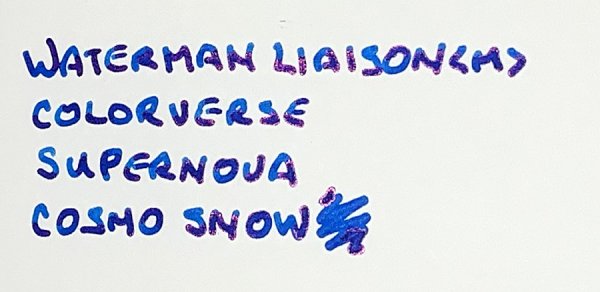 WATERMAN LIAISON<M>
COLORVERSE
SUPERNOVA
COSMO SNOW